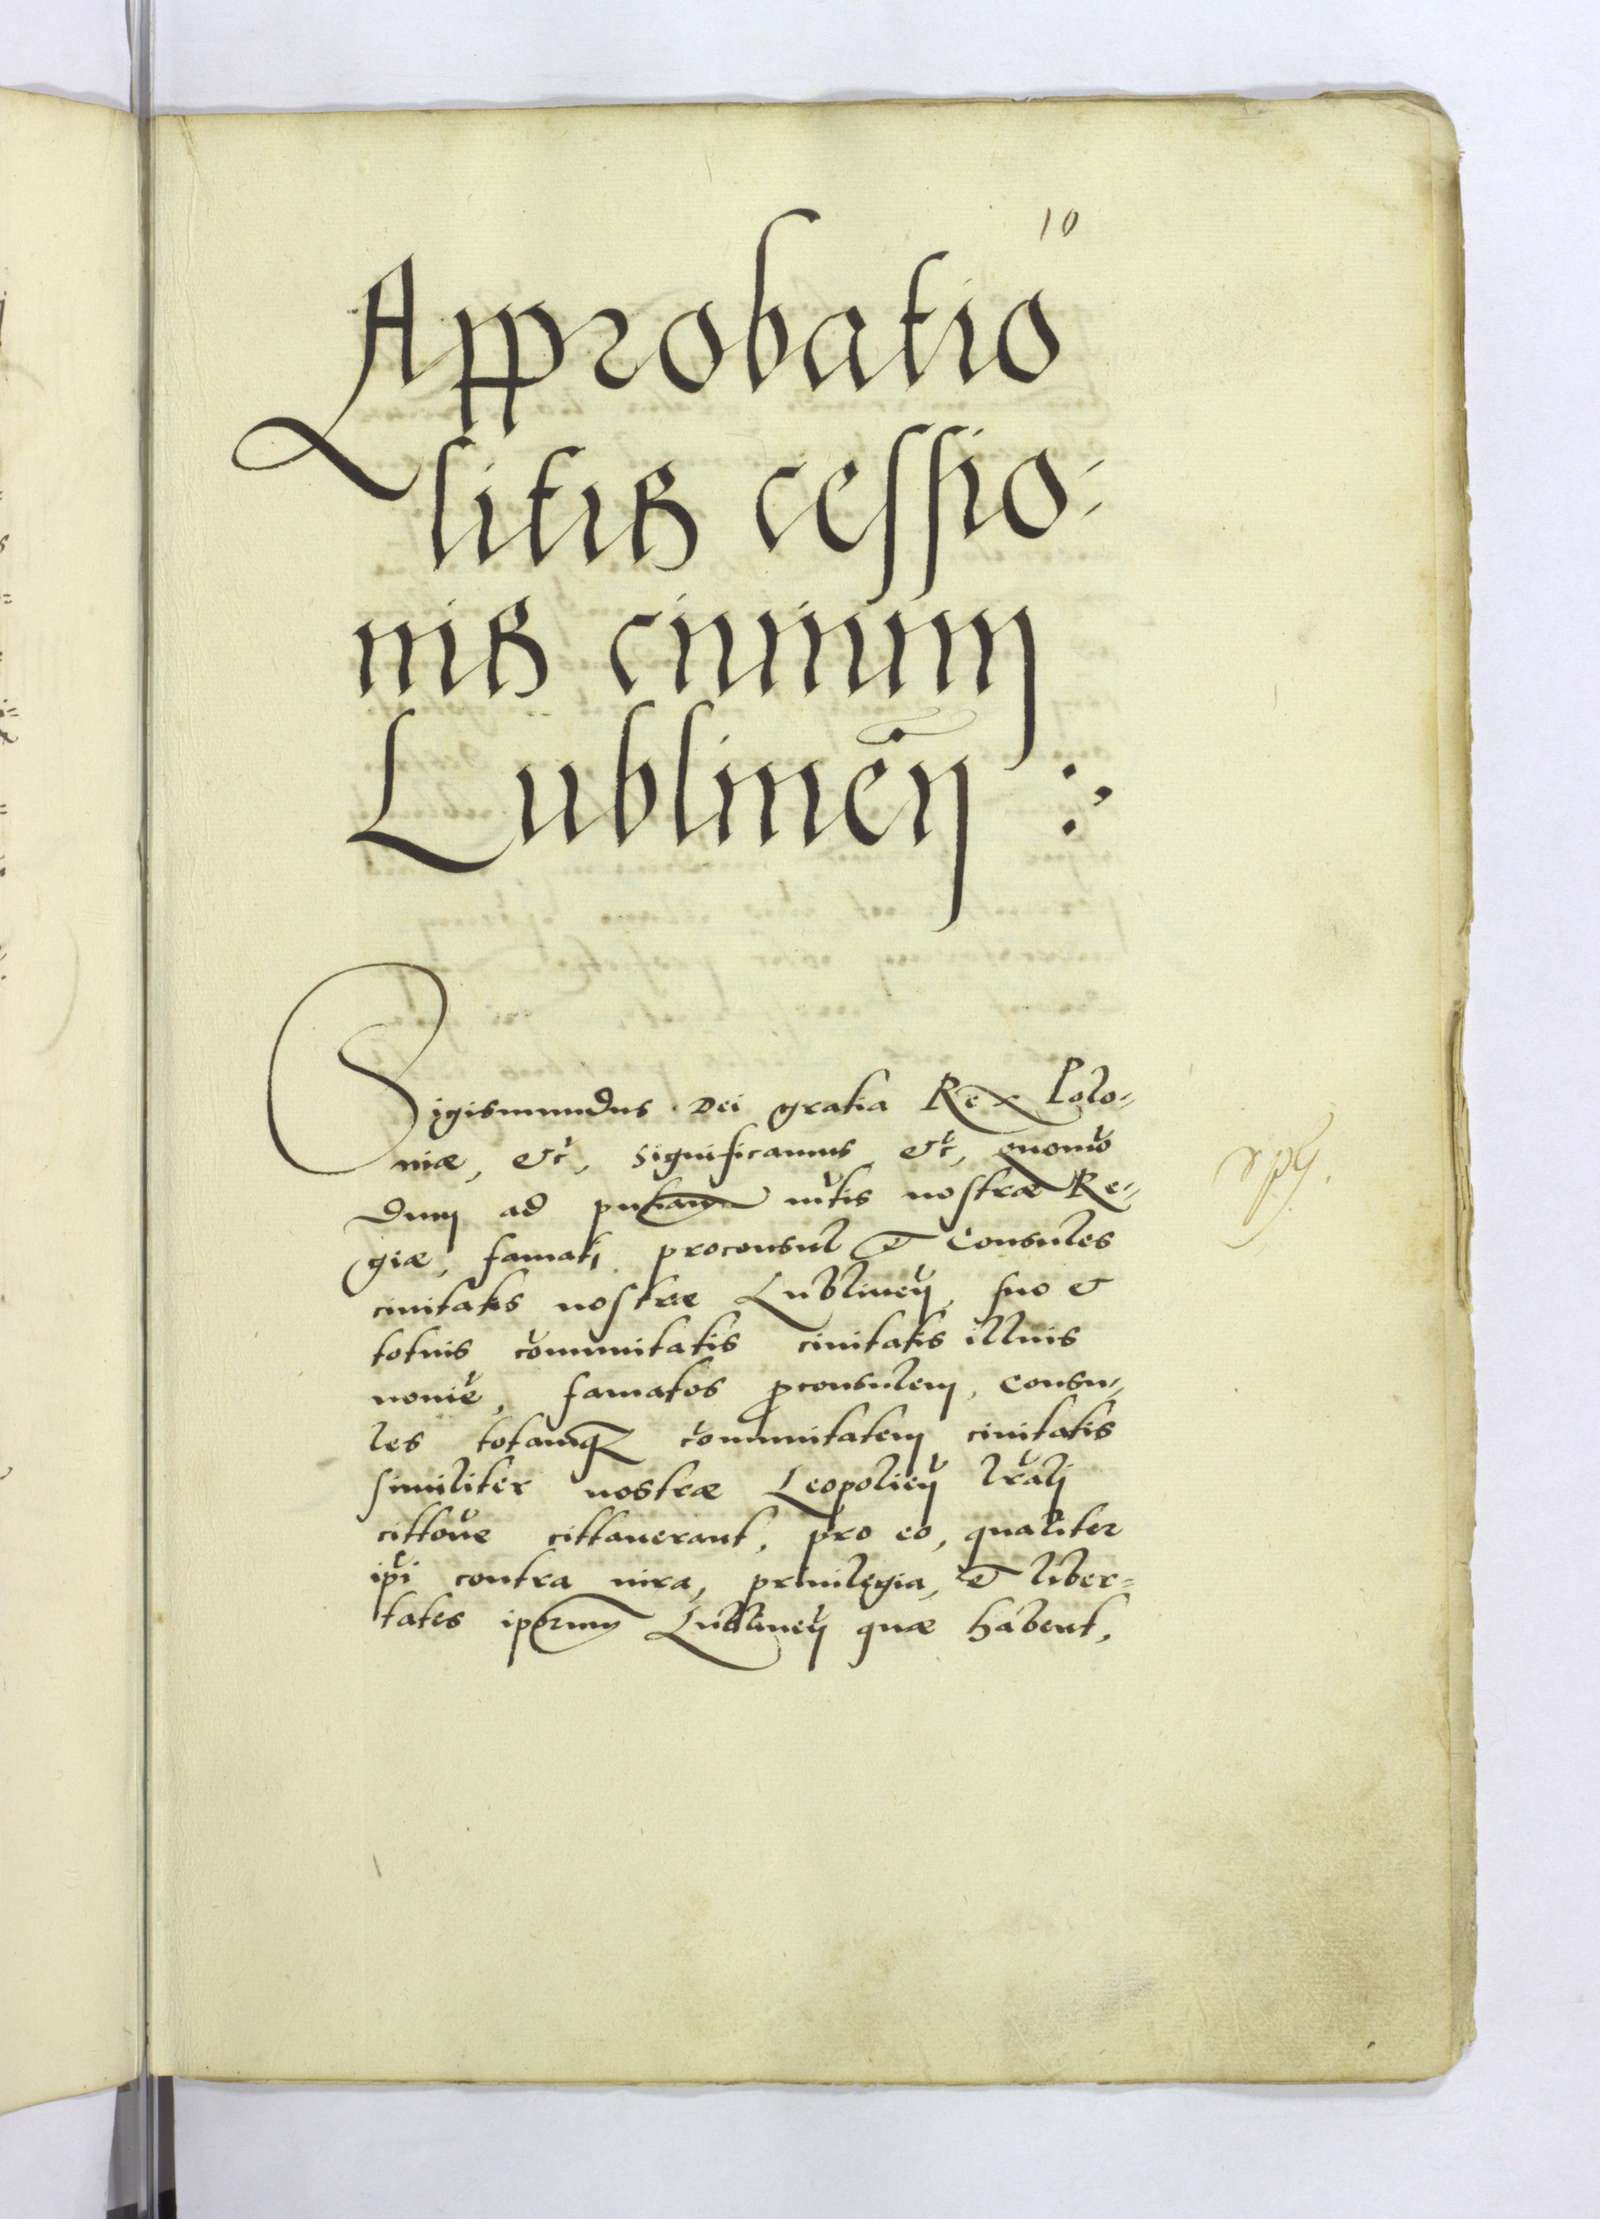 10
Approbatio
litis cessio-
nis ciuium
Lublineñ :
Sigismundus Dei gratia Rex Polo-
niæ, etc̃, Significamus etc̃, quomõ
dum ad pñtiam mt̃is nostræ Re-
giæ, famati proconsul et Consules
ciuitatis nostræ Lublineñ, suo et
totius cõmunitatis ciuitatis illius
nomiẽ, famatos ꝓconsulem, consu-
les totamqꝫ cõmunitatem ciuitatis
similiter nostræ Leopolieñ lr̃ali
cittõne cittauerant, pro eo, qualiter
ip̃i contra iura, priuilegia, et liber-
tates ip̃orum Lublineñ quæ habent,